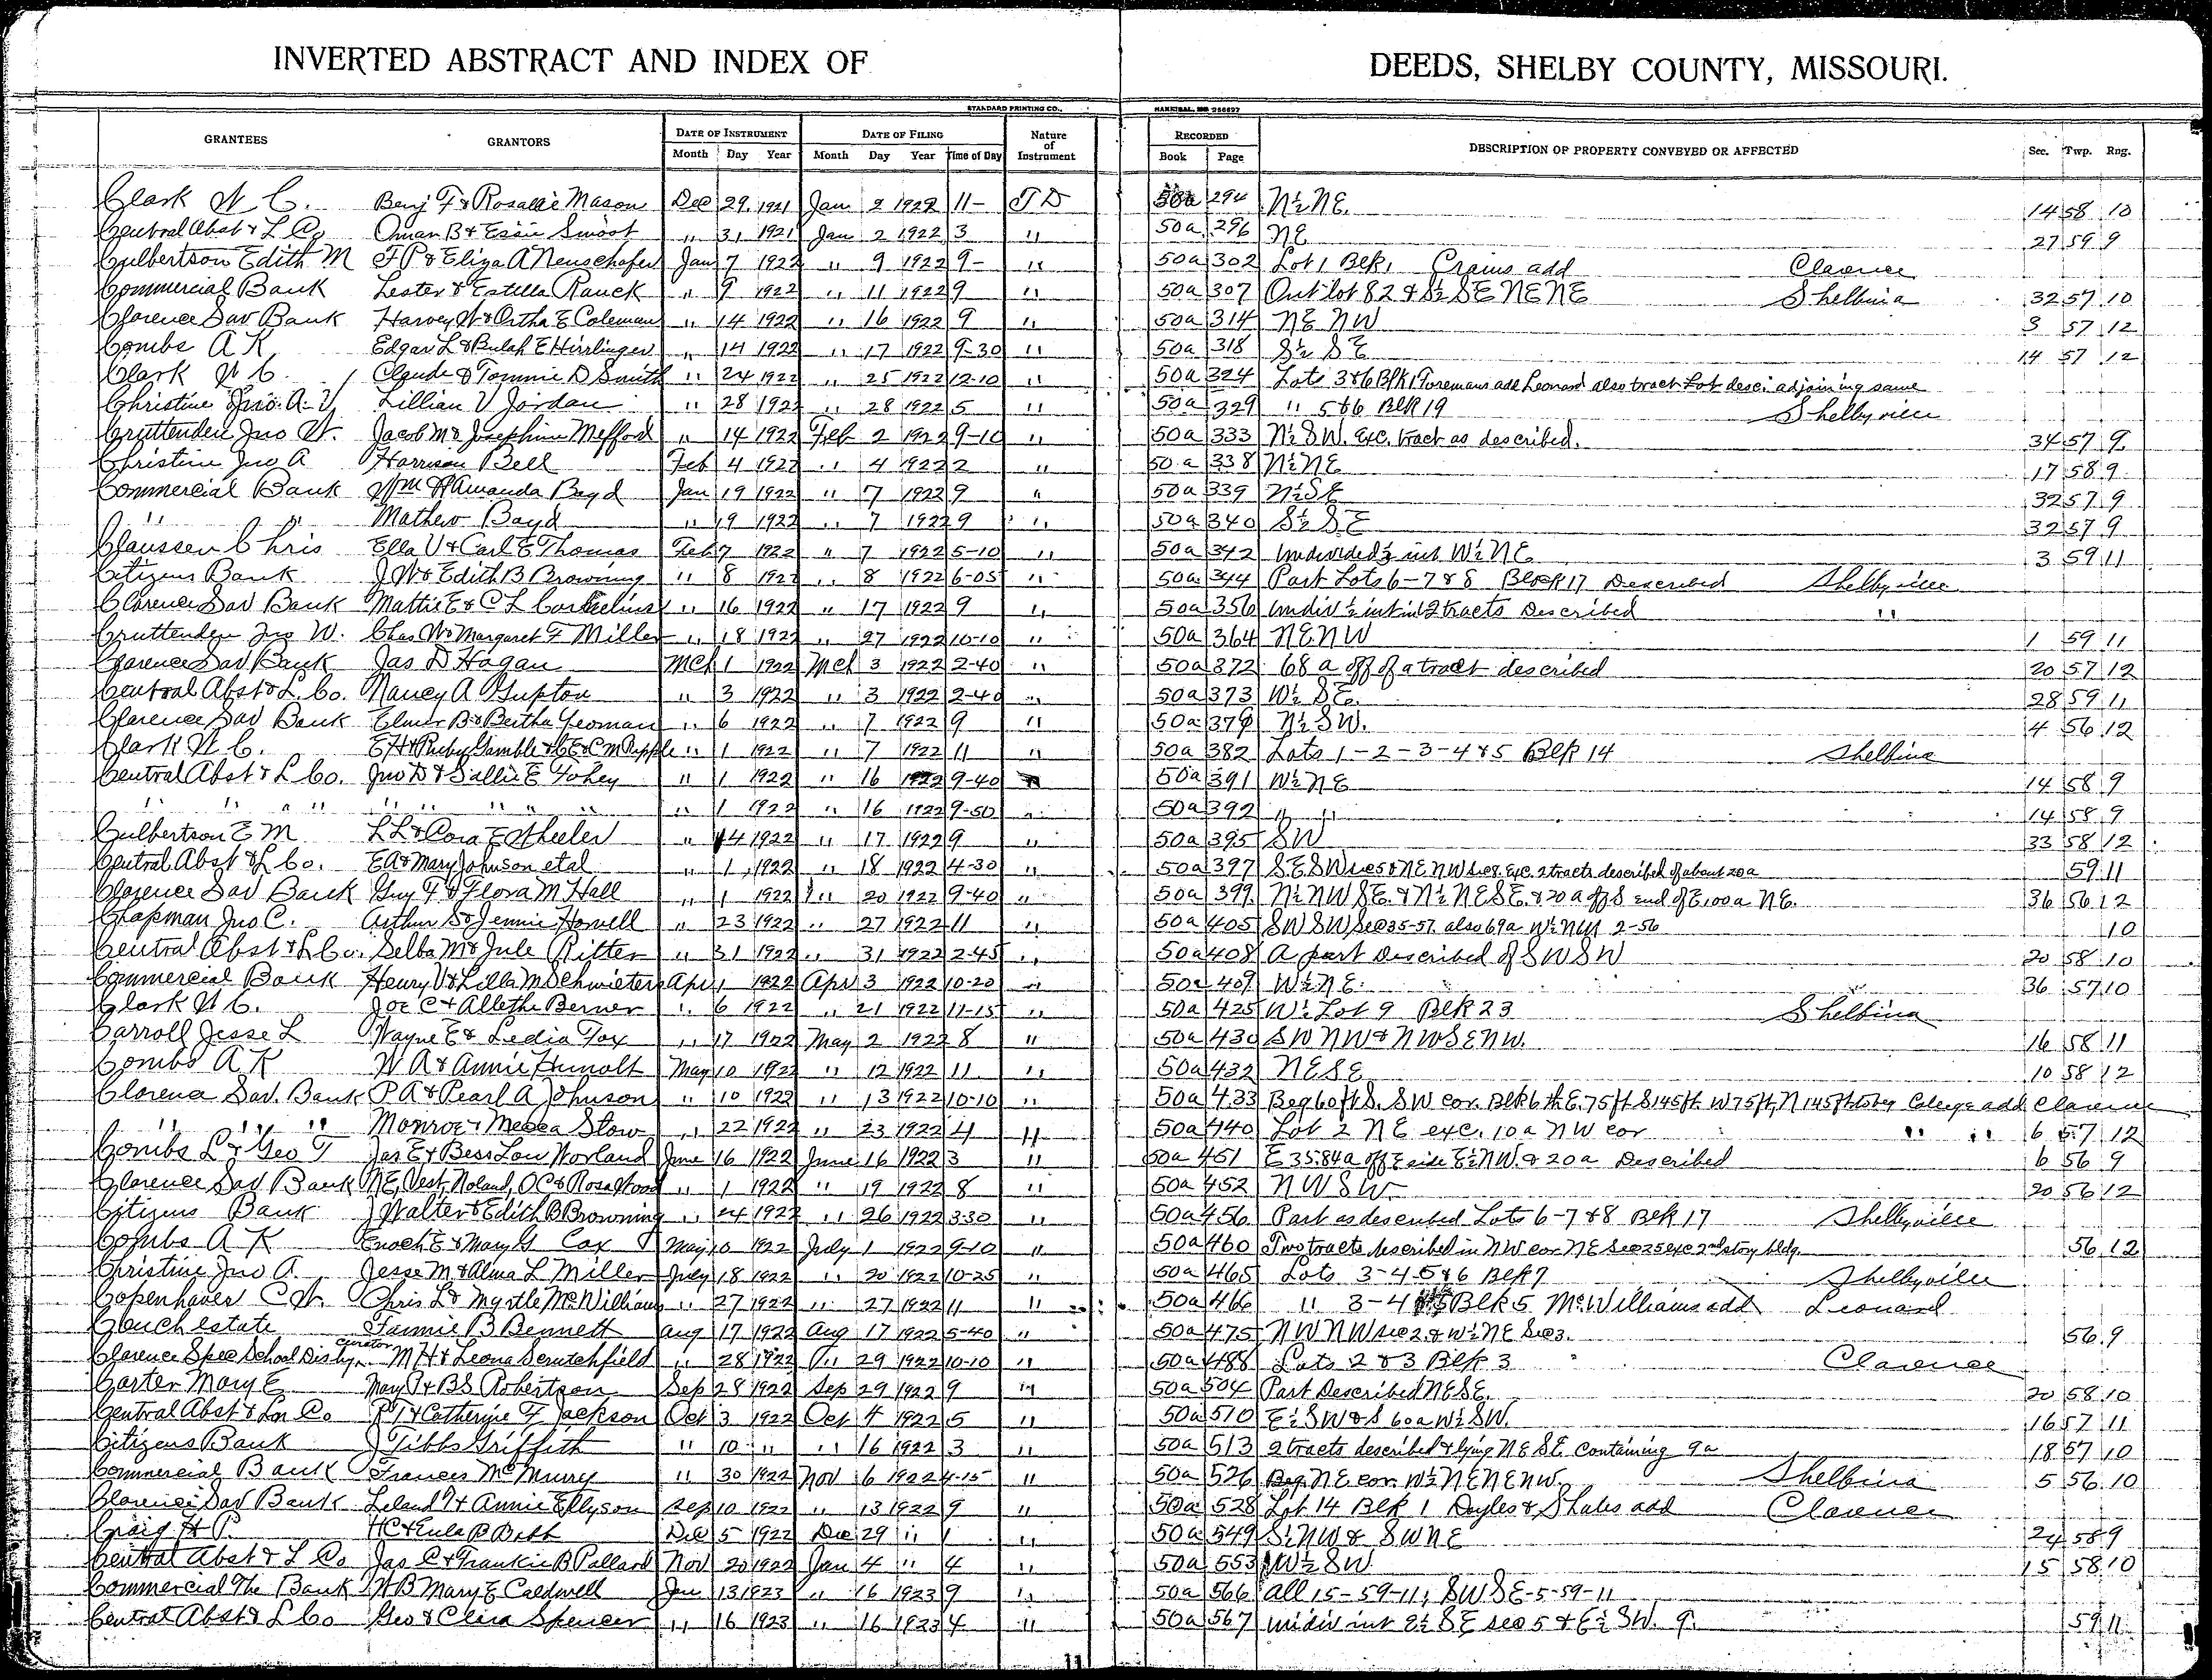 INVERTED ABSTRACT AND INDEX OF DEEDS, SHELBY COUNTY, MISSOURI.
STANDARD PRINTING CO., HANNIBAL, MO
GRANTEES GRANTORS DATE OF INSTRUMENT DATE OF FILING Nature of Instrument RECORDED DESCRIPTION OF PROPERTY CONVEYED OR AFFECTED Sec. Twp. Rng.
Month Day Year Month Day Year Time of Day Book Page
Clark W C. Benj F & Rosalie Mason Dec 29 1921 Jan 2 1922 11- T D 50a 294 N½ NE. 14 58 10
Central Abst & L Co Oman B & Essie Smoot " 31 1921 Jan 2 1922 3 " 50a 296 NE 27 59 9
Culbertson Edith M F P & Eliza A Neuschafer Jan 7 1922 " 9 1922 9- " 50a 302 Lot 1 Blk 1 Crains add Clarence
Commercial Bank Lester & Estella Rauck " 9 1922 " 11 1922 9 " 50a 307 Out lot 82 & S½ SE NE NE Shelbina 32 57 10
Clarence Sav Bank Harvey W & Ortha E Coleman " 14 1922 " 16 1922 9 " 50a 314 NE NW 3 57 12
Combs A K Edgar L & Bulah E Hirrlinger " 14 1922 " 17 1922 9-30 " 50a 318 S½ SE 14 57 12
Clark W C. Claude & Tommie D Smith " 24 1922 " 25 1922 12-10 " 50a 324 Lots 3 & 6 Blk 1 Foremans add Leonard also tract Lot desc. adjoining same
Christine Jno. A. V Lillian V Jordan " 28 1922 " 28 1922 5 " 50a 329 " 5 & 6 Blk 19 Shelbyville
Cruttenden Jno W. Jacob M & Josephine Mefford " 14 1922 Feb 2 1922 9-10 " 50a 333 N½ SW. exc. tract as described. 34 57 9
Christine Jno A Harrison Bell Feb 4 1922 " 4 1922 2 " 50a 338 N½ NE 17 58 9
Commercial Bank Wm & Amanda Boyd Jan 19 1922 " 7 1922 9 " 50a 339 N½ SE 32 57 9
" " Mathew Boyd " 19 1922 " 7 1922 9 " 50a 340 S½ SE 32 57 9
Claussen Chris Ella V & Carl E Thomas Feb 7 1922 " 7 1922 5-10 " 50a 342 Undivided ½ int W½ NE 3 59 11
Citizens Bank J W & Edith B Browning " 8 1922 " 8 1922 6-05 " 50a 344 Part Lots 6-7 & 8 Block 17 Described Shelbyville
Clarence Sav Bank Mattie E & C L " 16 1922 " 17 1922 9 " 50a 356 Undiv ½ int in 2 tracts Described "
Cruttenden Jno W. Chas W & Margaret F Miller " 18 1922 " 27 1922 10-10 " 50a 364 NE NW 1 59 11
Clarence Sav Bank Jas D Hagan Mch 1 1922 Mch 3 1922 2-40 " 50a 372 68 a off of a tract described 20 57 12
Central Abst & L. Co. Nancy A Gupton " 3 1922 " 3 1922 2-40 " 50a 373 W½ SE. 28 59 11
Clarence Sav Bank Elmer B & Bertha Yeoman " 6 1922 " 7 1922 9 " 50a 379 N½ SW. 4 56 12
Clark W C. E H & Ruby Gamble & C E & C M Ripple " 1 1922 " 7 1922 11 " 50a 382 Lots 1-2-3-4 & 5 Blk 14 Shelbina
Central Abst & L Co. Jno D & Sallie E Fohey " 1 1922 " 16 1922 9-40 50a 391 W½ NE 14 58 9
" " " " " " " " " " 1 1922 " 16 1922 9-50 " 50a 392 " " 14 58 9
Culbertson E M L L & Cora E Wheeler " 14 1922 " 17 1922 9 " 50a 395 SW 33 58 12
Central Abst & L Co. E A & Mary Johnson etal " 1 1922 " 18 1922 4-30 " 50a 397 SE SW sec 5 & NE NW sec 8 exc. 2 tracts described of about 20 a 59 11
Clarence Sav Bank Guy F & Flora M Hall " 1 1922 " 20 1922 9-40 " 50a 399 N½ NW SE. & N½ NE SE. & 20 a off S end of E 100 a NE. 36 56 12
Chapman Jno C. Arthur S & Jennie Howell " 23 1922 " 27 1922 11 " 50a 405 SW SW Sec 35-57 also 69a W½ NW 2-56 10
Central Abst & L Co. Selba M & Jule Ritter " 31 1922 " 31 1922 2-45 " 50a 408 A part Described of SW SW 20 58 10
Commercial Bank Henry V & Lilla M Schwieter Apr 1 1922 Apr 3 1922 10-20 " 50a 409 W½ NE. 36 57 10
Clark W C. Joe C & Allethe Berner " 6 1922 " 21 1922 11-15 " 50a 425 W½ Lot 9 Blk 23 Shelbina
Carroll Jesse L Wayne E & Ledia Fox " 17 1922 May 2 1922 8 " 50a 430 SW NW & NW SE NW. 16 58 11
Combs A K W A & Annie Humolt May 10 1922 " 12 1922 11 " 50a 432 NE SE 10 58 12
Clarence Sav. Bank P A & Pearl A Johnson " 10 1922 " 13 1922 10-10 " 50a 433 Beg 60 ft S. SW cor. Blk 6 th E. 75 ft S 145 ft. W 75 ft, N 145 ft to beg College add Clarence
" " " Monroe & Stow " 22 1922 " 23 1922 4 " 50a 440 Lot 2 NE exc. 10a NW cor " " 6 57 12
Combs L & Geo T Jas E & Bess Lou Worland June 16 1922 June 16 1922 3 " 50a 451 E 35.84a off E side E½ NW. & 20a Described 6 56 9
Clarence Sav Bank N E, Vest, Noland, O C & Rosa Wood " 1 1922 " 19 1922 8 " 50a 452 NW SW. 20 56 12
Citizens Bank J Walter & Edith B Browning " 24 1922 " 26 1922 3-30 " 50a 456 Part as described Lots 6-7 & 8 Blk 17 Shelbyville
Combs A K Enoch E & Mary G Cox May 10 1922 July 1 1922 9-10 " 50a 460 Two tracts described in NW cor NE Sec 25 exc 2nd story bldg. 56 12
Christine Jno A. Jesse M & Alma L Miller July 18 1922 " 20 1922 10-25 " 50a 465 Lots 3-4-5 & 6 Blk 7 Shelbyville
Copenhaver C W. Chris L & Myrtle McWilliams " 27 1922 " 27 1922 11 " 50a 466 " 3-4 & 5 Blk 5 McWilliams add Leonard
Couch estate Fannie B Bennett Aug 17 1922 Aug 17 1922 5-40 " 50a 475 NW NW sec 2 & W½ NE Sec 3. 56 9
Clarence Spec School Dist curator M H & Leona Scrutchfield " 28 1922 " 29 1922 10-10 " 50a 488 Lots 2 & 3 Blk 3 Clarence
Carter Mary E May P & B S Robertson Sep 28 1922 Sep 29 1922 9 " 50a 504 Part Described NE SE. 20 58 10
Central Abst & Ln Co R T & Catherine F Jackson Oct 3 1922 Oct 4 1922 5 " 50a 510 E½ SW & S 60a W½ SW. 16 57 11
Citizens Bank J Tibbs Griffith " 10 " " 16 1922 3 " 50a 513 2 tracts described & lying NE SE containing 9a 18 57 10
Commercial Bank Frances McMurry " 30 1922 Nov 6 1922 4-15 " 50a 526 Beg. NE cor. W½ NE NE NW. Shelbina 5 56 10
Clarence Sav Bank Leland T & Annie Ellyson Sep 10 1922 " 13 1922 9 " 50a 528 Lot 14 Blk 1 Doyles & Shales add Clarence
Craig H P. H C & Eula B Beth Dec 5 1922 Dec 29 " 1 " 50a 549 S½ NW & SW NE 24 58 9
Central Abst & L Co Jas C & Frankie B Pollard Nov 20 1922 Jan 4 " 4 " 50a 553 W½ SW 15 58 10
Commercial The Bank W B Mary E Caldwell Jan 13 1923 " 16 1923 9 " 50a 566 all 15-59-11, SW SE-5-59-11
Central Abst & L Co Geo & Clara Spencer " 16 1923 " 16 1923 4 " 50a 567 undiv int E½ SE sec 5 & E½ SW. 9. 59 11
11